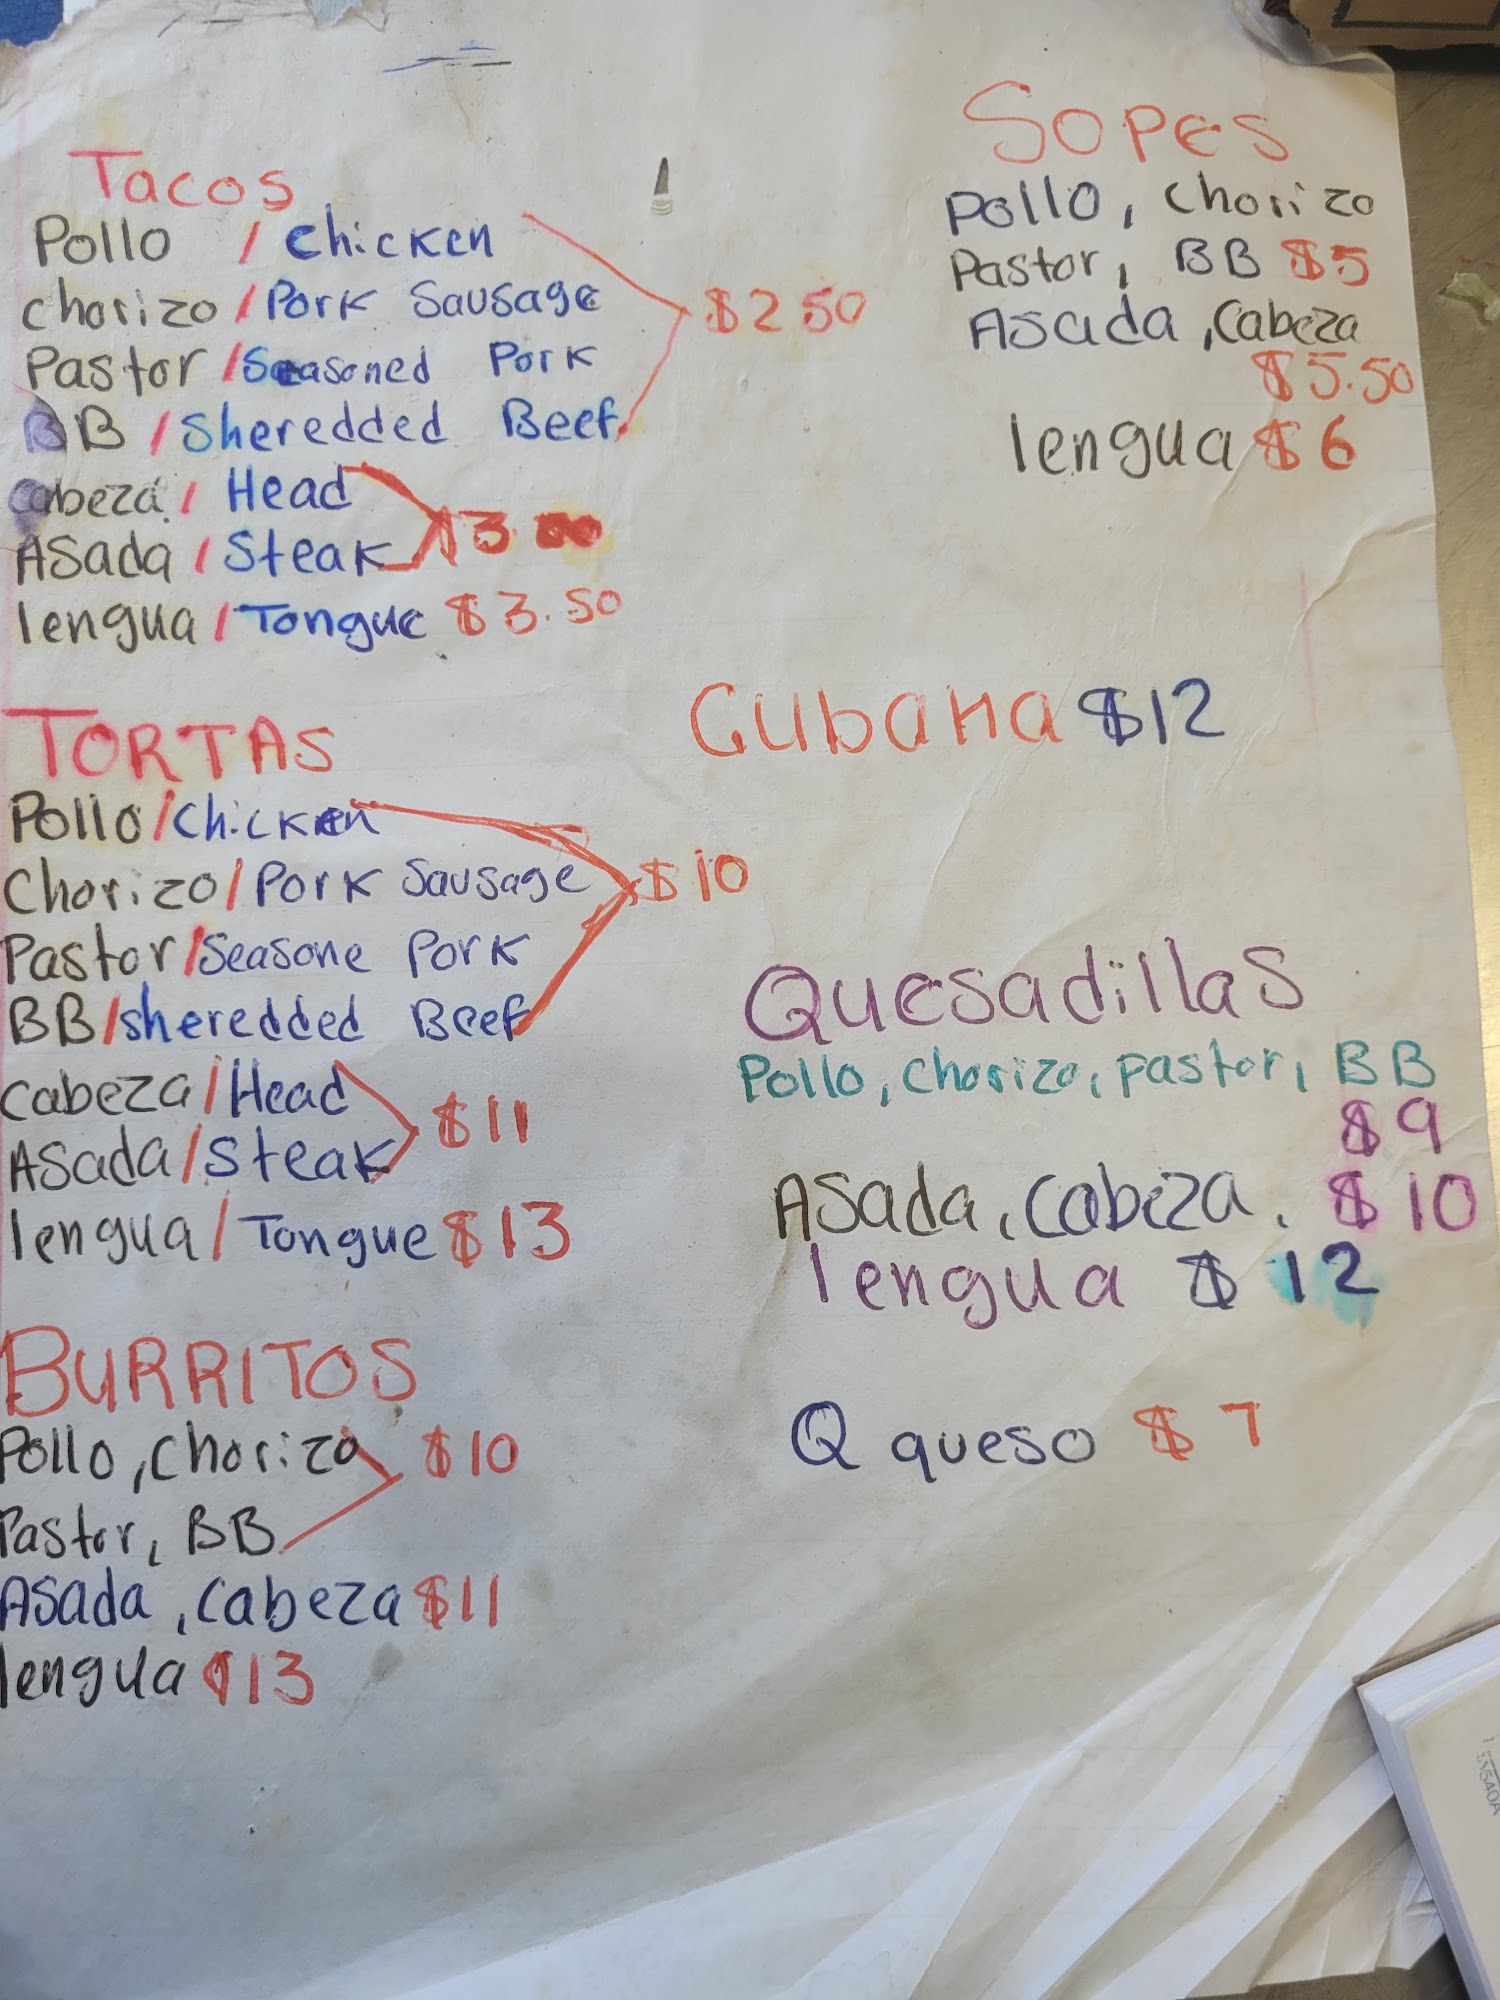 Tacos
Pollo / Chicken
chorizo / Pork Sausage
Pastor / Seasoned Pork
$2 50
BB / Sheredded Beef
cabeza / Head
$3.00
Asada / Steak
lengua / Tongue $3.50
TORTAS
Pollo / Chicken
Chorizo / Pork Sausage
$10
Pastor / Seasone Pork
BB / sheredded Beef
cabeza / Head
$11
Asada / Steak
lengua / Tongue $13
BURRITOS
Pollo, Chorizo $10
Pastor, BB
Asada, cabeza $11
lengua $13
SOPES
Pollo, Chorizo
Pastor, BB $5
Asada, Cabeza
$5.50
lengua $6
Cubana $12
Quesadillas
Pollo, Chorizo, pastor, BB
$9
Asada, Cabeza. $10
lengua $12
Q queso $7